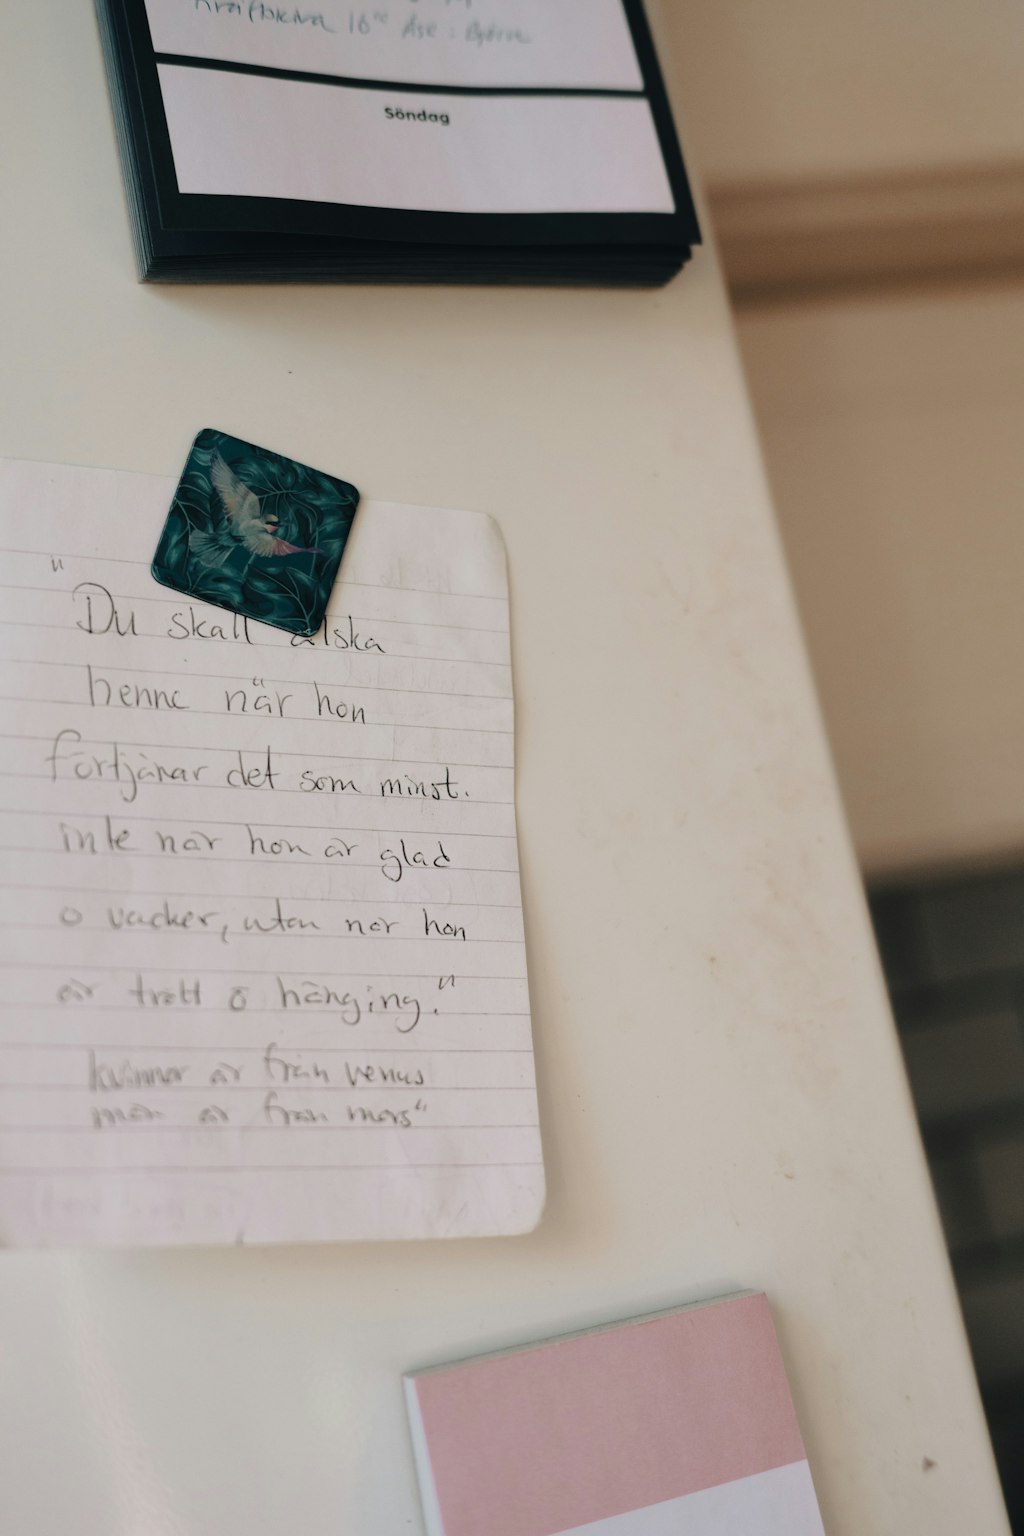 Kräftskiva 16⁰⁰ Åse : Björn
Söndag
"Du skall älska
henne när hon
förtjänar det som minst.
inte när hon är glad
o vacker, utan när hon
är trött o hängig."
kvinnor är från venus
män är från mars"